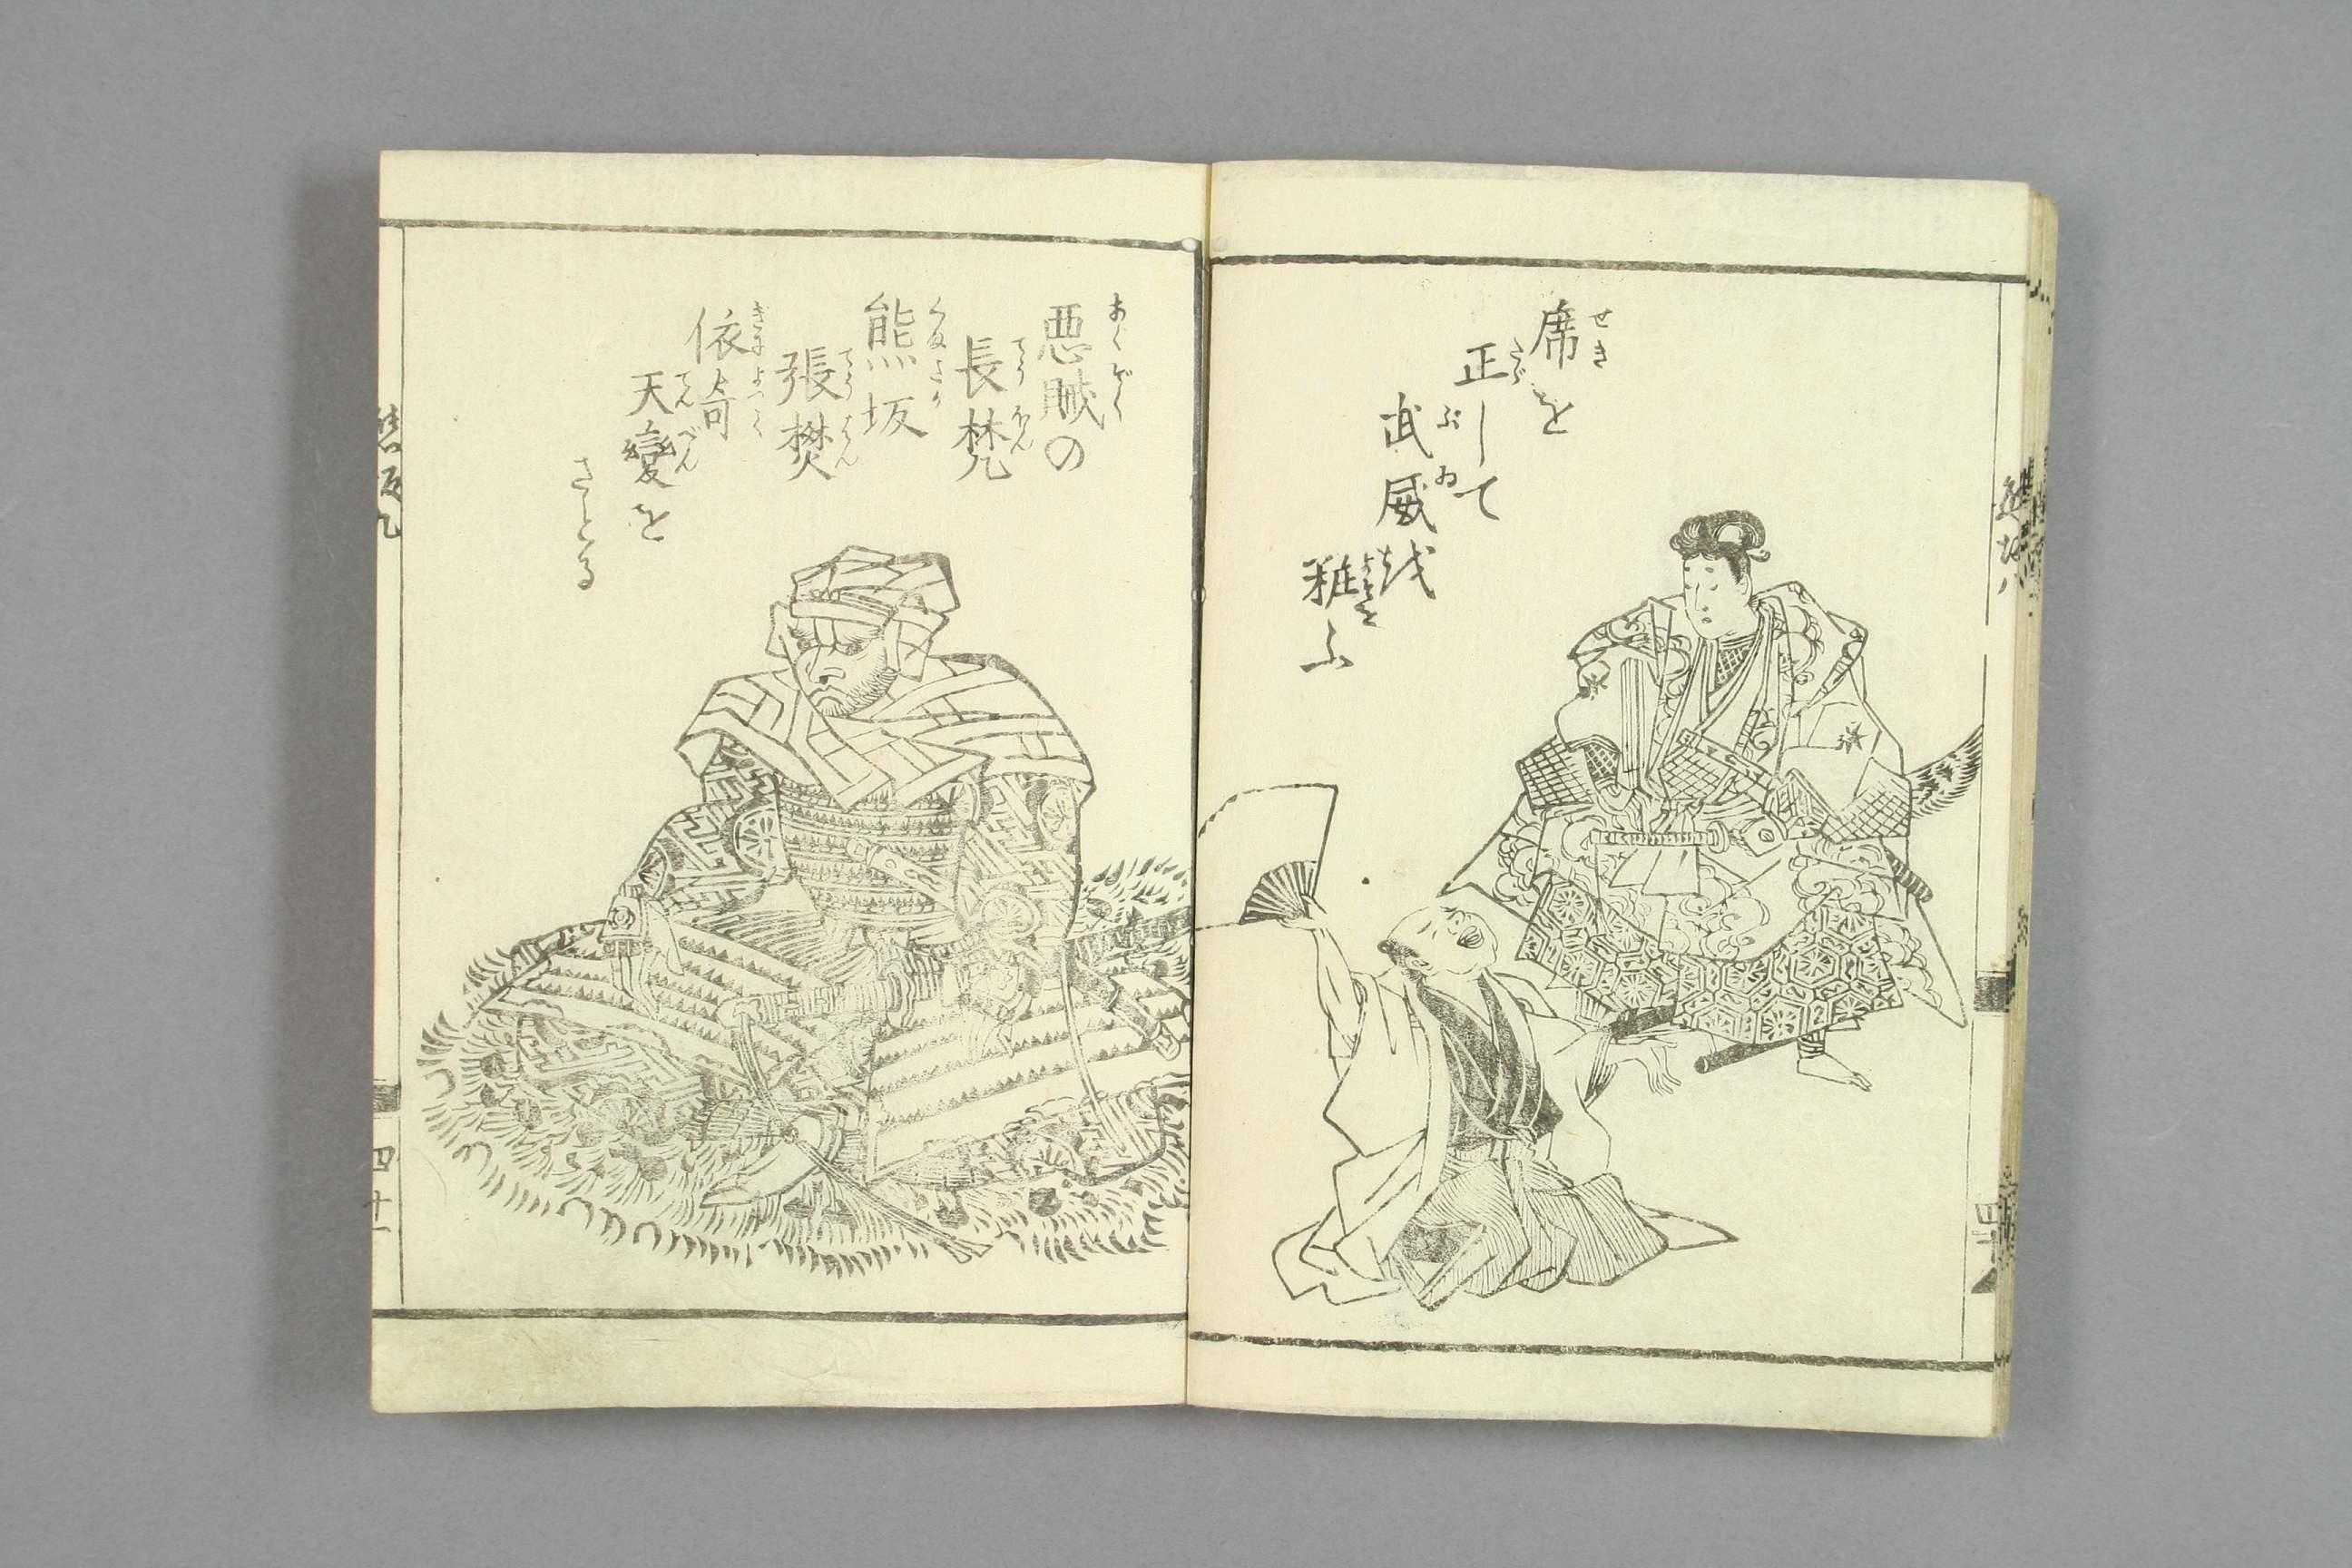 席を
正して
武威越
粧ふ
悪賊の
長梵
熊坂
張樊
依奇
天變を
さとる
四十一